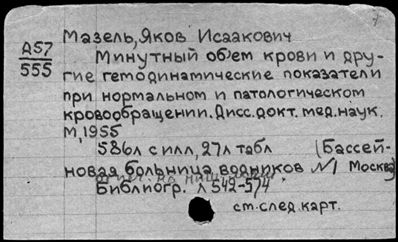 7
Мазель, Яков Исаакович
Д57
555
Минутный объем крови и дру-
гие гемодинамические показатели
при нормальном и патологическом
кровообращении. Дисс. докт. мед. наук.
М, 1955
586л с илл, 27л табл (Бассей-
новая больница водников №1 Москва)
Библиогр. л 542-574
см. след. карт.